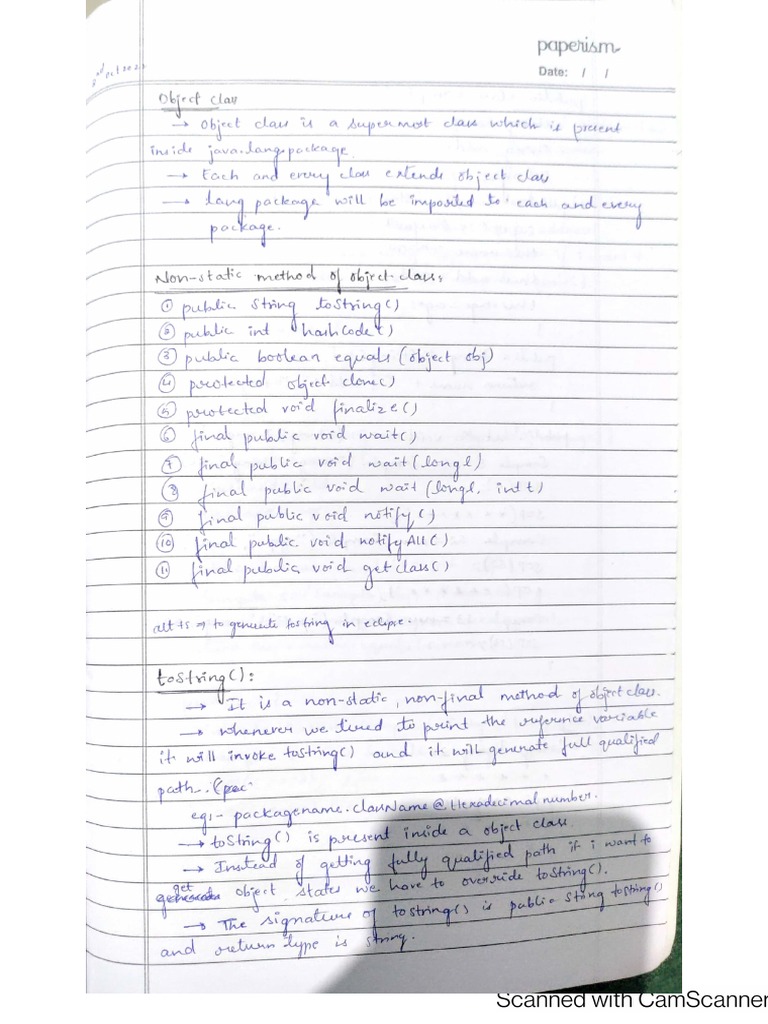 paperism
Date: / /
Object class
→ Object class is a supermost class which is present
inside java.lang.package.
→ Each and every class extends object class
→ lang package will be imported to each and every
package.
Non-static method of object class:
① public string toString()
② public int hashCode()
③ public boolean equals (object obj)
④ protected object clone()
⑤ protected void finalize()
⑥ final public void wait()
⑦ final public void wait(long l)
⑧ final public void wait (long l, int t)
⑨ final public void notify()
⑩ final public void notifyAll()
⑪ final public void getclass()
alt+s ⇒ to generate tostring in eclipse.
toString():
→ It is a non-static, non-final method of object class.
→ whenever we tired to print the reference variable
it will invoke tostring() and it will generate full qualified
path.
eg:- packagename.className@Hexadecimal number.
→ toString() is present inside a object class.
→ Instead of getting fully qualified path if i want to
get object states we have to override toString().
→ The signature of tostring() is public string tostring()
and return type is string.
Scanned with CamScanner